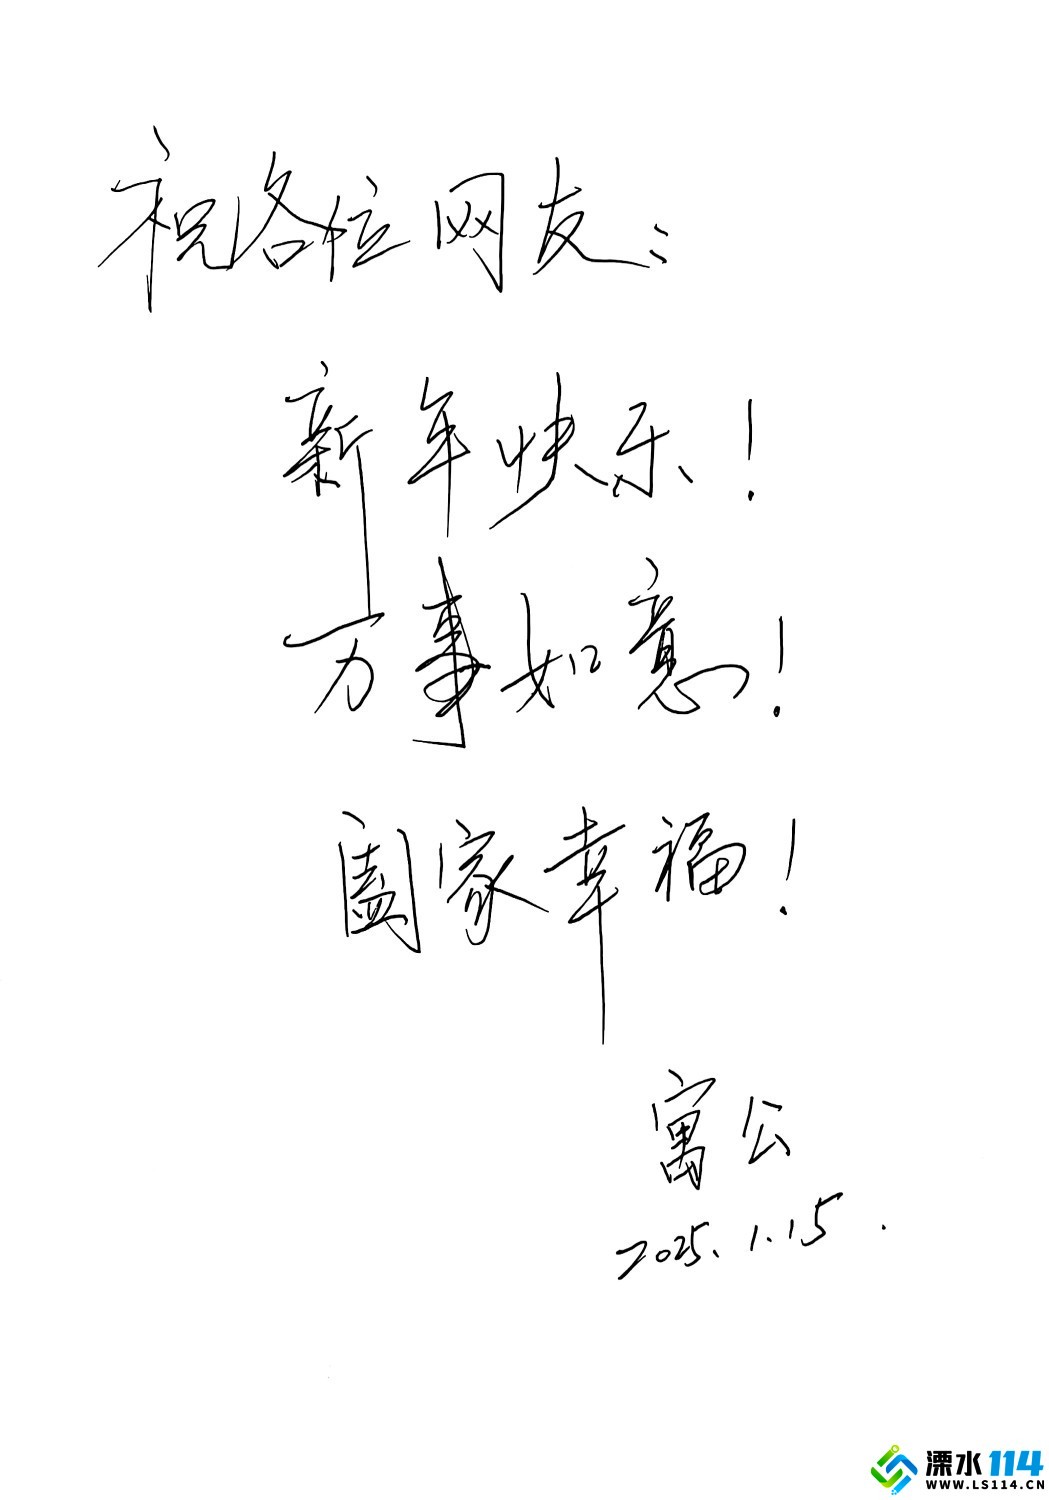 祝各位网友：
新年快乐！
万事如意！
阖家幸福！
寓公
2025.1.15.
溧水114
WWW.LS114.CN